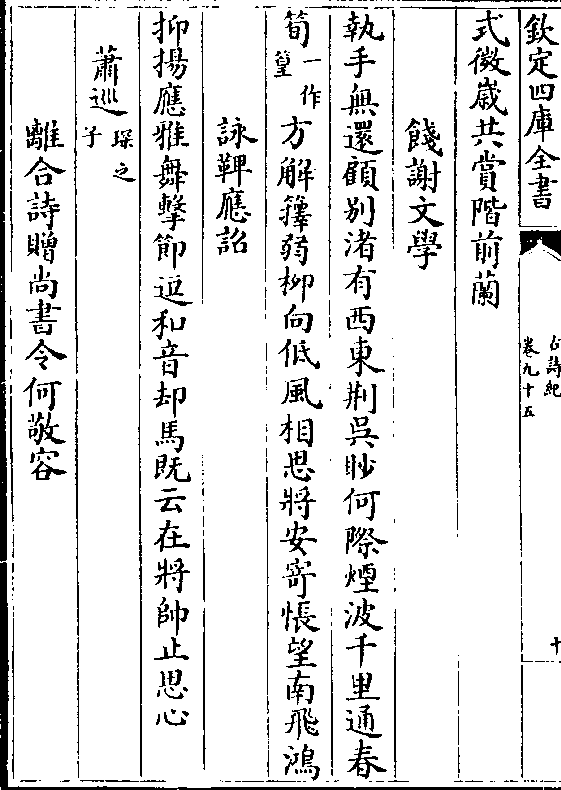 欽定四庫全書
古詩紀
卷九十五
十
式微歳共賞階前蘭
餞謝文學
執手無還顧别渚有西東荆吳眇何際煙波千里通春
筍一作篁方解籜弱柳向低風相思將安寄悵望南飛鴻
詠鞞應詔
抑揚應雅舞擊節逗和音却馬既云在將帥止思心
蕭巡琛之子
離合詩贈尚書令何敬容